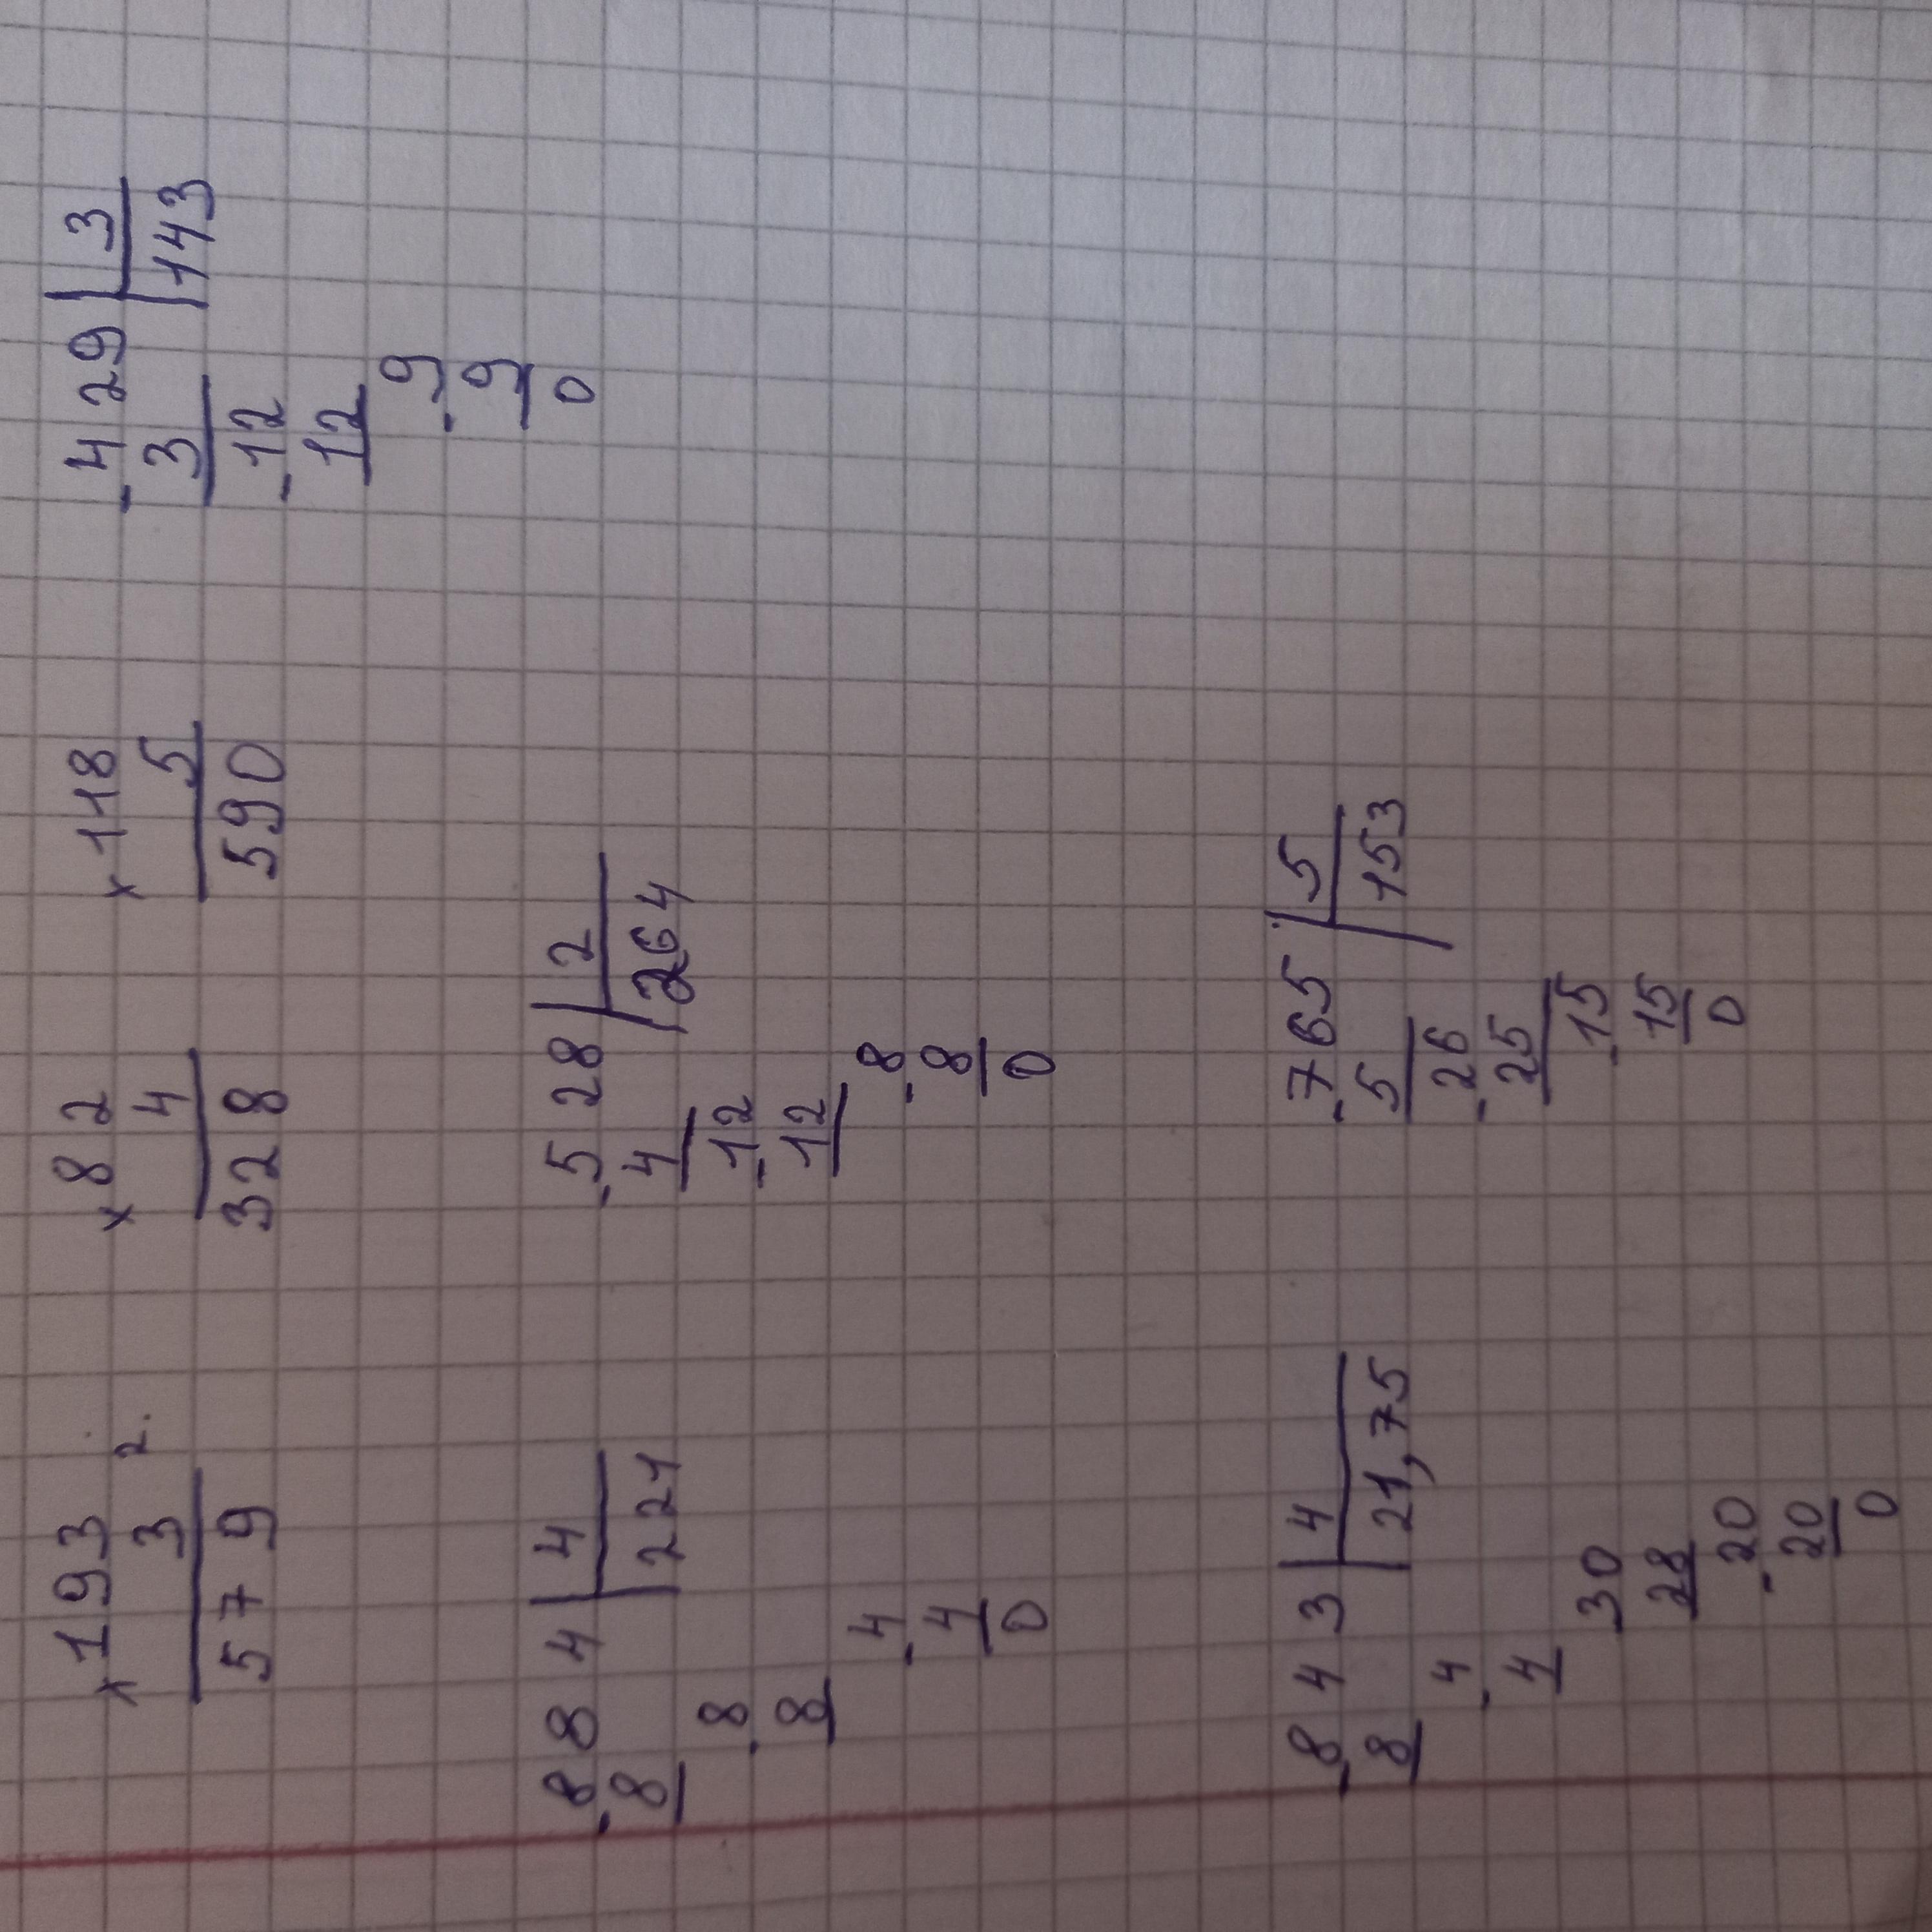 ×193 2. ×82 ×118 -429 | 3
3 4 5 3 143
579 328 590 -12
12
-9
9
0
-884 | 4 -528 | 2
8 221 4 264
-8 -12
8 12
-4 -8
4 8
0 0
-843 | 4 -765 | 5
8 21,75 5 153
-4 -26
4 25
30 -15
28 15
-20 0
20
0